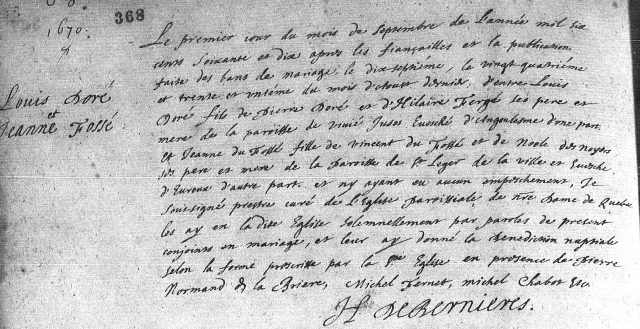 1670.
368
Louis Doré
et
Jeanne Fossé
Le premier jour du mois de Septembre de L'année mil six
cents soixante et dix apres les fiançailles et la publication
faite des bans de mariage le dixseptieme, le vingt quatriéme
et trente et unième du mois d'Aoust dernier, d'entre Louis
Doré fils de Pierre Doré et d'Hilaire Fergé ses pere et
mere de la parroisse de Jusos Euesché d'Angoulesme d'une part
Et Jeanne du Fossé fille de Vincent du Fossé et de Noele des Noyers
ses pere et mere de la Parroisse de St Leger de la ville et Euesche
d'Eureux d'autre part. et ny ayant eu aucun empeschement, Je
soussigné prestre curé de L'Eglise Parroissiale de nre Dame de Quebec
les ay en la dite Eglise solemnellement par paroles de present
conjoints en mariage, et leur ay donné la Benediction nuptiale
selon la forme prescritte par la Ste Eglise en presence de Pierre
Normand de la Briere, Michel Fernet, michel Chabot &c
H. DeBernieres.